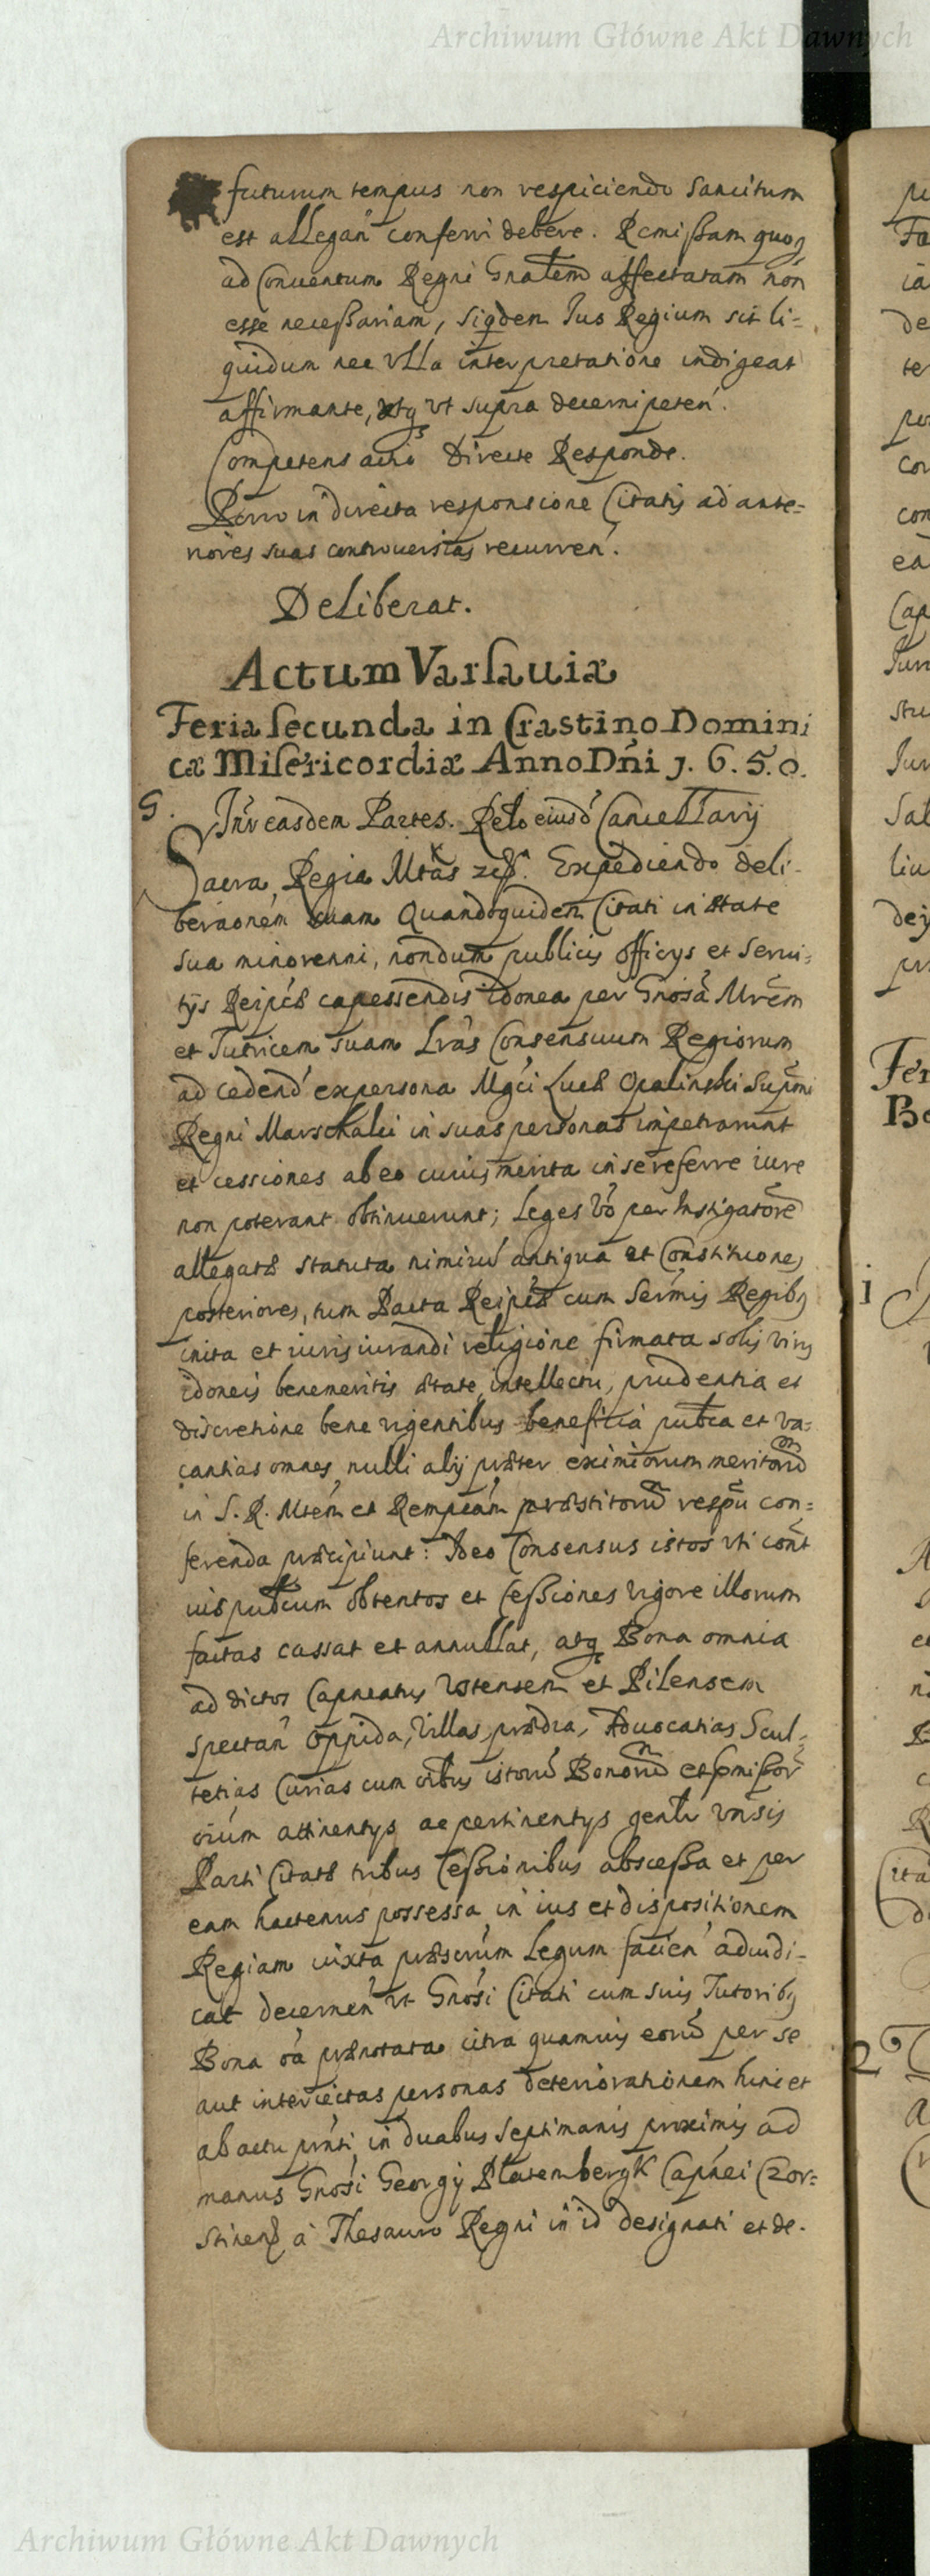 Archiwum Główne Akt Dawnych
futurum tempus non respiciendo sancitum
est allegan̄ conferri debere. Remißam quoq
ad Conuentum Regni Gnãlem affectatam non
esse neceßariam, siqdem Ius Regium sit li=
quidum nec vlla interpretatione indigeat
affirmante, atq vt supra decerni peten̄.
Competens actio Directe Responde.
Porro in directa responsione Citatis ad ante=
riores suas controuersias recurren̄.
Deliberat.
Actum Varsauiæ
Feria secunda in Crastino Domini
cæ Misericordiæ Anno Dn̄i j. 6. 5. 0.
5. Int̄ easdem Partes. Relõ eiusd̄ Cancellarij
Sacra Regia Mtas Expediendo deli-
beraonem suam Quandoquidem Citati in ætate
sua minorenni, nondum publicis officijs et serui=
tijs Reipcæ capessendis idonea per Gnosã Mrẽm
et Tutricem suam Lrãs Consensuum Regiorum
ad cedend̄ ex persona Mgci Lucæ Opalinski Supmi
Regni Marschalci in suas personas impetrarunt
et cessiones ab eo cuius merita in se referre iure
non poterant obtinuerunt; Leges vo per Instigatorẽ
allegatæ statuta nimirū antiqua et Constitucones
posteriores, tum Pacta Reipcæ cum Serm̃is Regibs
inita et iurisiurandi religione firmata solis viris
idoneis benemeritis ætate, intellectu, prudentia et
discretione bene vigentibus beneficia pubca et va=
cantias omnes, nulli alij præter eximiorum meritorū
in S. R. Mtem et Rempcãm præstitorū respũ con=
ferenda præcipiunt: Ideo Consensus istos vti cont
ius pubcum obtentos et Ceßiones vigore illorum
factas cassat et annullat, atq Bona omnia
ad dictos Capneatus Vstensem et Pilensem
spectan̄ Oppida, Villas, prædia, Aduocatias, Scul=
tetias Curias cum oībus istorū Bonorū et
oium attinentijs ac pertinentijs genlr vnsis
Parti Citatæ tribus Ceßionibus absceßa et per
eam hactenus possessa, in ius et dispositionem
Regiam iuxta præscrũm Legum facien̄ adiudi=
cat decernen̄ vt Gnosi Citati cum suis Tutoribs
Bona oã prænotata citra quamuis eorū per se
aut interiectas personas deteriorationem hinc et
ab actu pnti in duabus septimanis proximis ad
manus Gnosi Georgij Platembergk Capnei Czor=
stinen̄ à Thesauro Regni in id designati et de-
Archiwum Główne Akt Dawnych